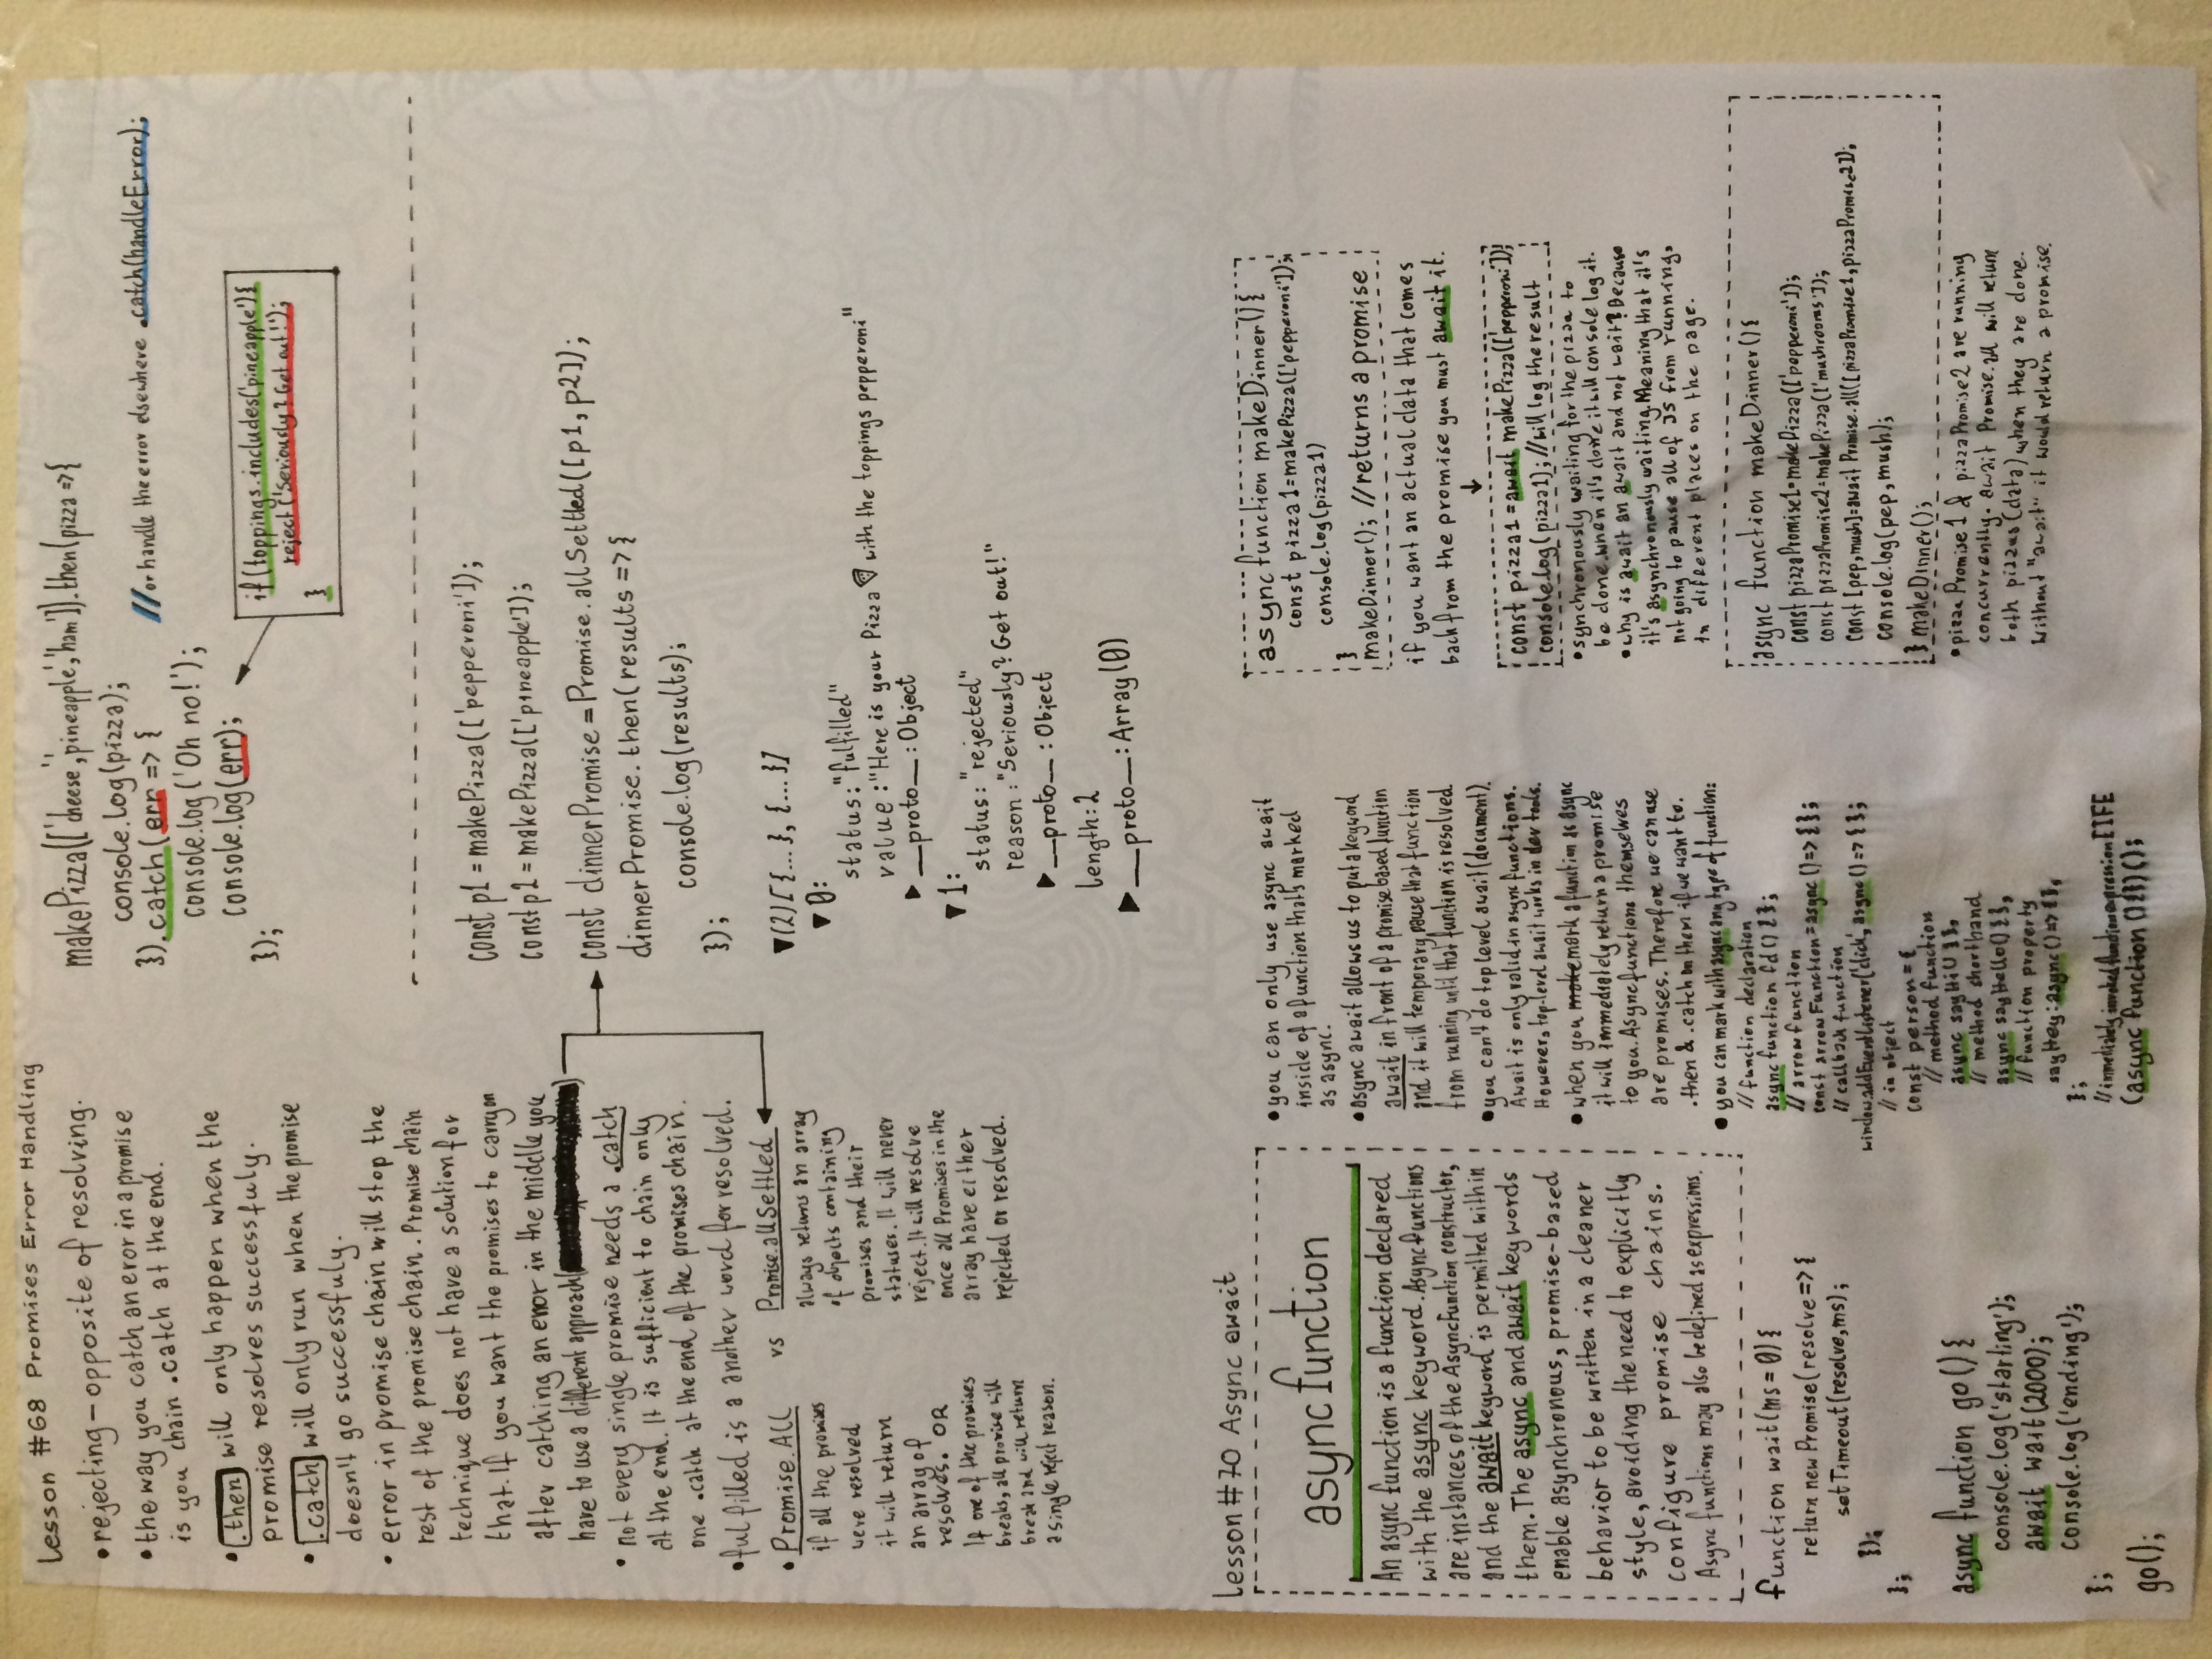 Lesson #68 Promises Error Handling
• rejecting – opposite of resolving.
• the way you catch an eror in a promise
is you chain .catch at the end.
• .then will only happen when the
promise resolves successfuly.
• .catch will only run when the promise
doesn't go successfuly.
• error in promise chain will stop the
rest of the promise chain. Promise chain
technique does not have a solution for
that. If you want the promises to carry on
after catching an error in the middle you
have to use a different approach( )
• not every single promise needs a .catch
at the end. It is sufficient to chain only
one .catch at the end of the promises chain.
• fulfilled is a another word for resolved.
• Promise.All vs Promise.allSettled
if all the promises
were resolved
it will return
an array of
resolves. OR
If one of the promises
breaks, all promise will
break and will return
a single reject reason.
always returns an array
of objects containing
promises and their
statuses. It will never
reject. It will resolve
once all Promises in the
array have either
rejected or resolved.
makePizza(['cheese','pineapple','ham']).then(pizza => {
console.log(pizza);
}).catch(err => {
console.log('Oh no!');
console.log(err);
});
// or handle the error elsewhere .catch(handleError);
if(toppings.includes('pineapple'){
reject('Seriously? Get out!');
}
const p1 = makePizza(['pepperoni']);
const p2 = makePizza(['pineapple']);
const dinnerPromise = Promise.allSettled([p1, p2]);
dinnerPromise.then(results => {
console.log(results);
});
▼(2)[{...}, {...}]
▼ 0:
status: "fulfilled"
value: "Here is your Pizza 🍕 with the toppings pepperoni"
▶ __proto__: Object
▼ 1:
status: "rejected"
reason: "Seriously? Get out!"
▶ __proto__: Object
length: 2
▶ __proto__: Array(0)
Lesson #70 Async await
async function
An async function is a function declared
with the async keyword. Async functions
are instances of the AsyncFunction constructor,
and the await keyword is permitted within
them. The async and await keywords
enable asynchronous, promise-based
behavior to be written in a cleaner
style, avoiding the need to explicitly
configure promise chains.
Async functions may also be defined as expressions.
function wait(ms = 0){
return new Promise(resolve => {
setTimeout(resolve,ms);
});
};
async function go(){
console.log('starting');
await wait(2000);
console.log('ending');
};
go();
• you can only use async await
inside of a function that's marked
as async.
• async await allows us to put a keyword
await in front of a promise based function
and it will temporary pause that function
from running until that function is resolved.
• you can't do top level await (document).
Await is only valid in async functions.
However, top-level await works in dev tools.
• when you make mark a function as async
it will immediately return a promise
to you. Async functions themselves
are promises. Therefore we can use
.then & .catch on them if we want to.
• you can mark with async any type of function:
// function declaration
async function fd(){};
// arrow function
const arrowFunction = async () => {};
// callback function
window.addEventListener('click', async () => {});
// in object
const person = {
// method function
async sayHi(){},
// method shorthand
async sayHello(){},
// function property
sayHey: async () => {},
};
// immediately invoked function expression IIFE
(async function (){})();
async function makeDinner(){
const pizza1 = makePizza(['pepperoni']);
console.log(pizza1)
}
makeDinner(); //returns a promise
if you want an actual data that comes
back from the promise you must await it.
↓
const pizza1 = await makePizza(['pepperoni']);
console.log(pizza1); //will log the result
• synchronously waiting for the pizza to
be done. when it's done it will console log it.
• why is await an await and not wait? Because
it's asynchronously waiting. Meaning that it's
not going to pause all of JS from running,
in different places on the page.
async function makeDinner(){
const pizzaPromise1 = makePizza(['pepperoni']);
const pizzaPromise2 = makePizza(['mushrooms']);
const [pep, mush] = await Promise.all([pizzaPromise1, pizzaPromise2]);
console.log(pep, mush);
} makeDinner();
• pizzaPromise1 & pizzaPromise2 are running
concurrently. await Promise.all will return
both pizzas (data) when they are done.
Without "await" it would return a promise.